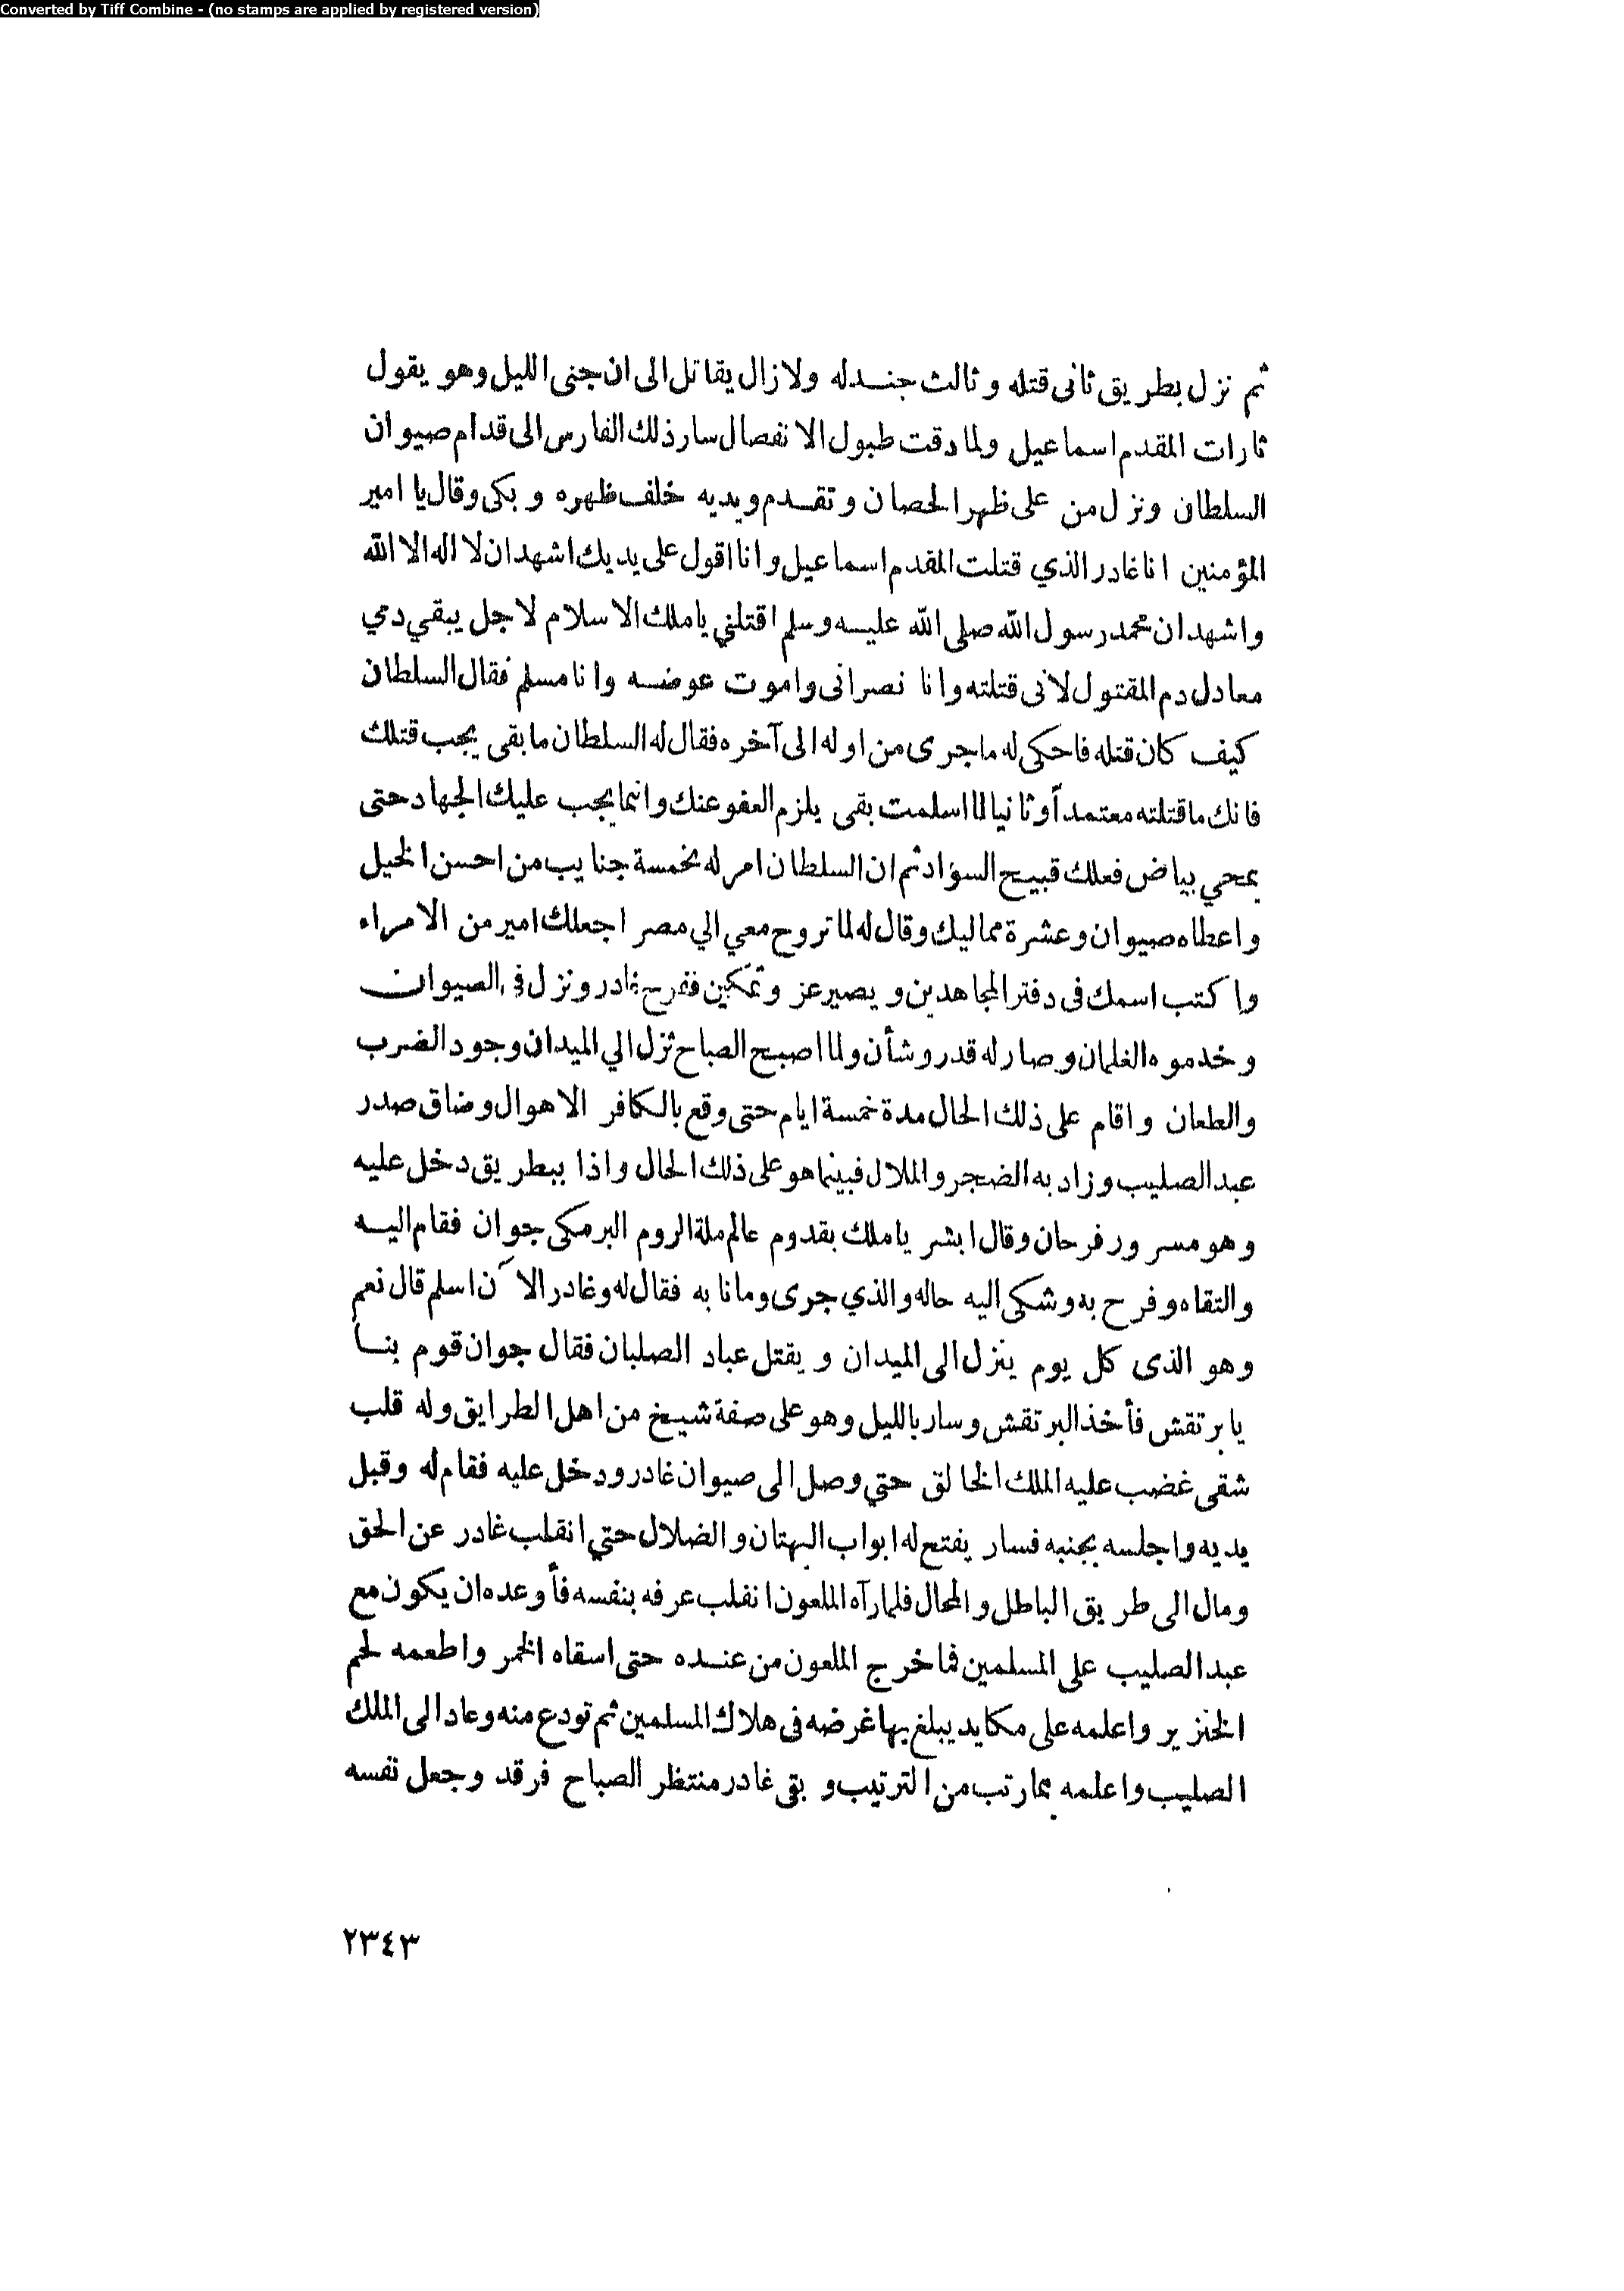 Converted by Tiff Combine - (no stamps are applied by registered version)
ثم نزل بطريق ثانى قتله وثالث جندله ولازال يقاتل الى ان جنى الليل وهو يقول
ثارات المقدم اسماعيل ولما دقت طبول الانفصال سار ذلك الفارس الى قدام صيوان
السلطان ونزل من على ظهر الحصان وتقدم ويديه خلف ظهره وبكى وقال يا امير
المؤمنين انا غادر الذي قتلت المقدم اسماعيل وانا اقول على يديك اشهد ان لا اله الا الله
واشهد ان محمد رسول الله صلى الله عليه وسلم اقتلني يا ملك الاسلام لاجل يبقي دمي
معادل دم المقتول لانى قتلته وانا نصرانى واموت عوضه وانا مسلم فقال السلطان
كيف كان قتله فاحكى له ما جرى من اوله الى آخره فقال له السلطان ما بقى يجب قتلك
فانك ما قتلته معتمداً وثانيا لما اسلمت بقى يلزم العفو عنك وانما يجب عليك الجهاد حتى
يمحي بياض فعلك قبيح السؤاد ثم ان السلطان امر له بخمسة جنايب من احسن الخيل
واعطاه صيوان وعشرة مماليك وقال له لما تروح معي الي مصر اجعلك امير من الامراء
واكتب اسمك فى دفتر المجاهدين ويصير عز وتمكين ففرح غادر ونزل في الصيوان
وخدموه الغلمان وصار له قدر وشأن ولما اصبح الصباح نزل الي الميدان وجود الضرب
والطعان واقام على ذلك الحال مدة خمسة ايام حتى وقع بالكافر الاهوال وضاق صدر
عبد الصليب وزاد به الضجر والملال فبينما هو على ذلك الحال واذا ببطريق دخل عليه
وهو مسرور فرحان وقال ابشر يا ملك بقدوم عالم ملة الروم البرمكى جوان فقام اليه
والتقاه وفرح به وشكى اليه حاله والذي جرى ومانا به فقال له وغادر الآن اسلم قال نعم
وهو الذى كل يوم ينزل الى الميدان ويقتل عباد الصلبان فقال جوان قوم بنا
يا برتقش فأخذ البرتقش وسار بالليل وهو على صفة شيخ من اهل الطرايق وله قلب
شقى غضب عليه الملك الخالق حتي وصل الى صيوان غادر ودخل عليه فقام له وقبل
يديه واجلسه بجنبه فسار يفتح له ابواب البهتان والضلال حتي انقلب غادر عن الحق
ومال الى طريق الباطل والمحال فلما رآه الملعون انقلب عرفه بنفسه فأوعده ان يكون مع
عبد الصليب على المسلمين فما خرج الملعون من عنده حتى اسقاه الخمر واطعمه لحم
الخنزير واعلمه على مكايد يبلغ بها غرضه فى هلاك المسلمين ثم تودع منه وعاد الى الملك
الصليب واعلمه بما رتب من الترتيب وبقى غادر منتظر الصباح فرقد وجعل نفسه
٢٣٤٣